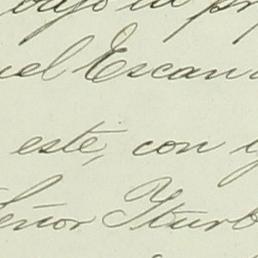 bajo la pr
uel Escan
este, con y
Señor Yturb